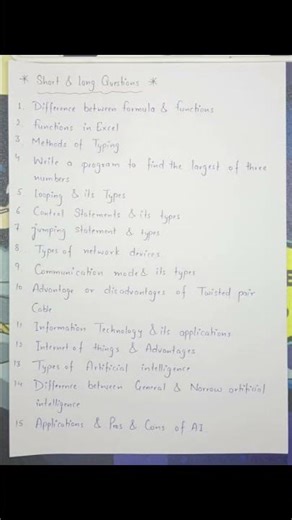 * Short & long Questions *
1. Difference between formula & functions
2. functions in Excel
3 Methods of Typing
4 Write a program to find the largest of three
numbers
5 Looping & its Types
6 Control Statements & its types
7 jumping statement & types
8 Types of network devices.
9 Communication mode & its types
10 Advantage or disadvantages of Twisted-pair
Cable
11 Information Technology & its applications
12 Internet of things & Advantages
13 Types of Artificial intelligence
14 Difference between General & Narrow artificial
intelligence
15. Applications & Pros & Cons of AI